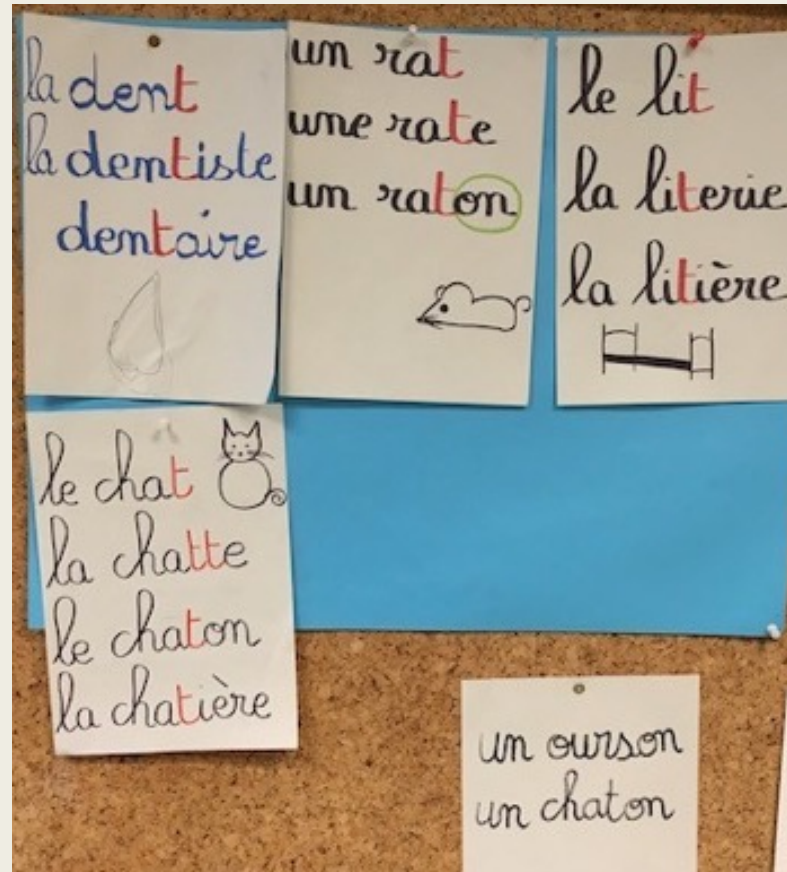 la dent
la dentiste
dentaire
un rat
une rate
un raton
le lit
la literie
la litière
le chat
la chatte
le chaton
la chatière
un ourson
un chaton